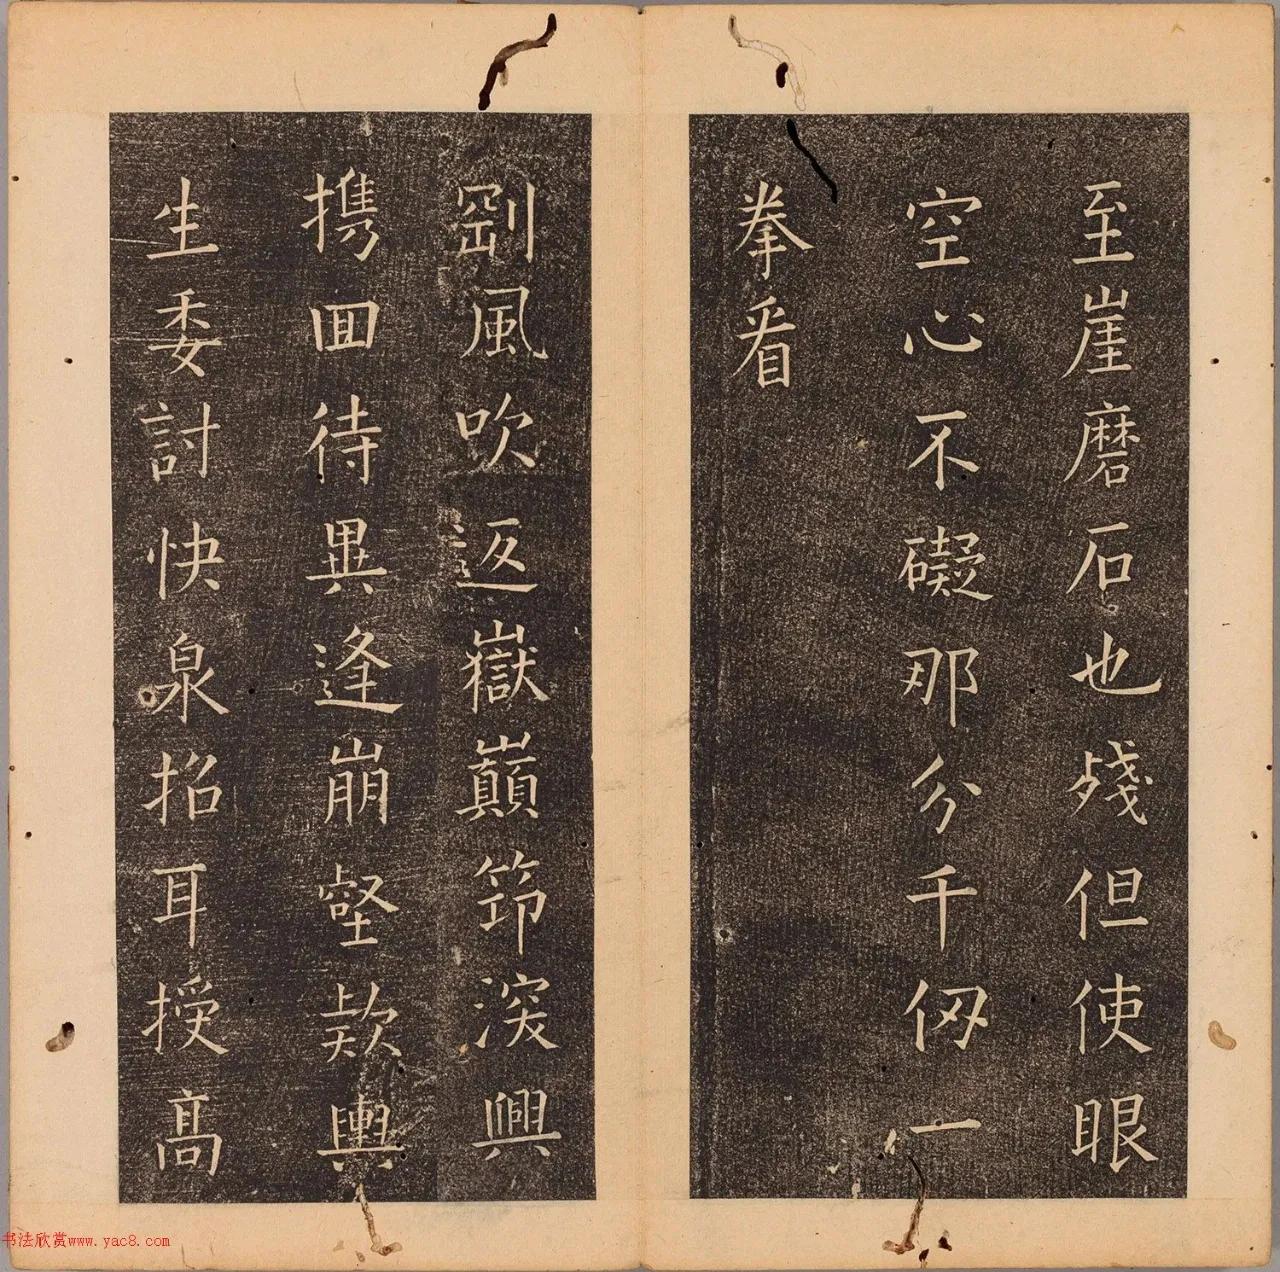 至崖磨石也殘但使眼
空心不礙那分千仭一
拳看
罡風吹返嶽巔笻深興
携回待異逢崩壑欵輿
生委討快泉招耳授高
书法欣赏www.yac8.com